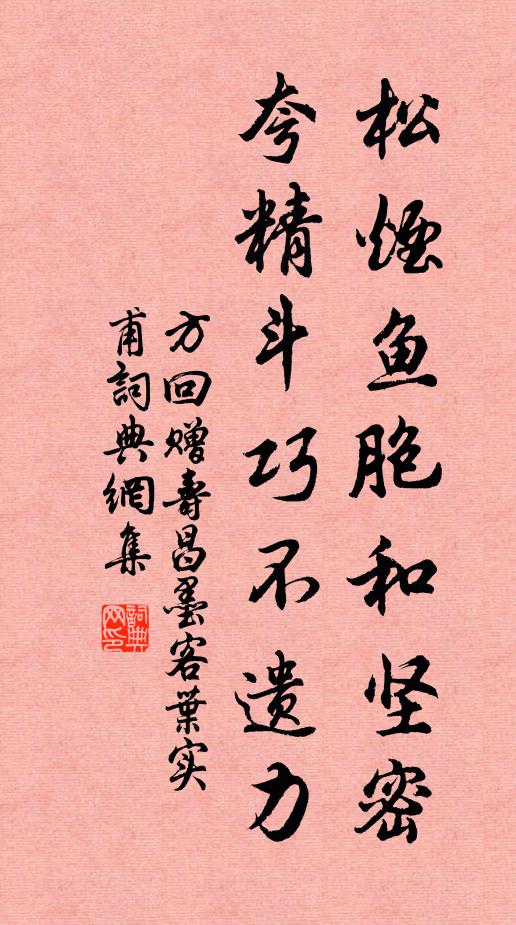 松烟鱼胞和坚密
夸精斗巧不遗力
方回赠寿昌墨客葉实
甫詞典網集
詞典網印